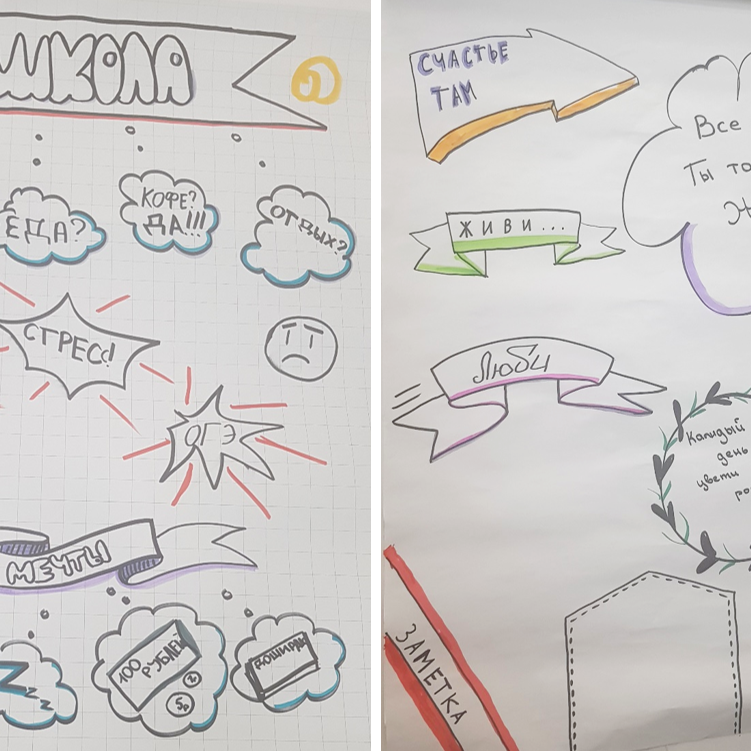 ШКОЛА
ЕДА?
КОФЕ?
ДА!!!
ОТДЫХ?
СТРЕСС!
ОГЭ
МЕЧТЫ
Z Z Z
100
РУБЛЕЙ
5р
ДОШИРАК
СЧАСТЬЕ
ТАМ
Все
Ты то
ЖИВИ...
Люби
Каждый
день
цвети
ро
ЗАМЕТКА